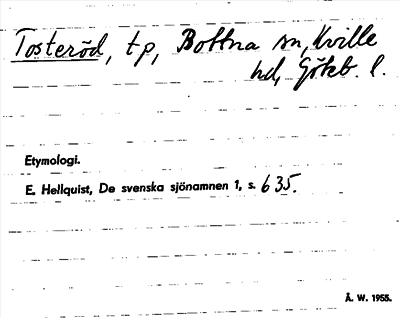 Tosteröd, tp, Bottna sn, Kville
hd, Göteb. l.
Etymologi.
E. Hellquist, De svenska sjönamnen 1, s. 635.
Å. W. 1955.